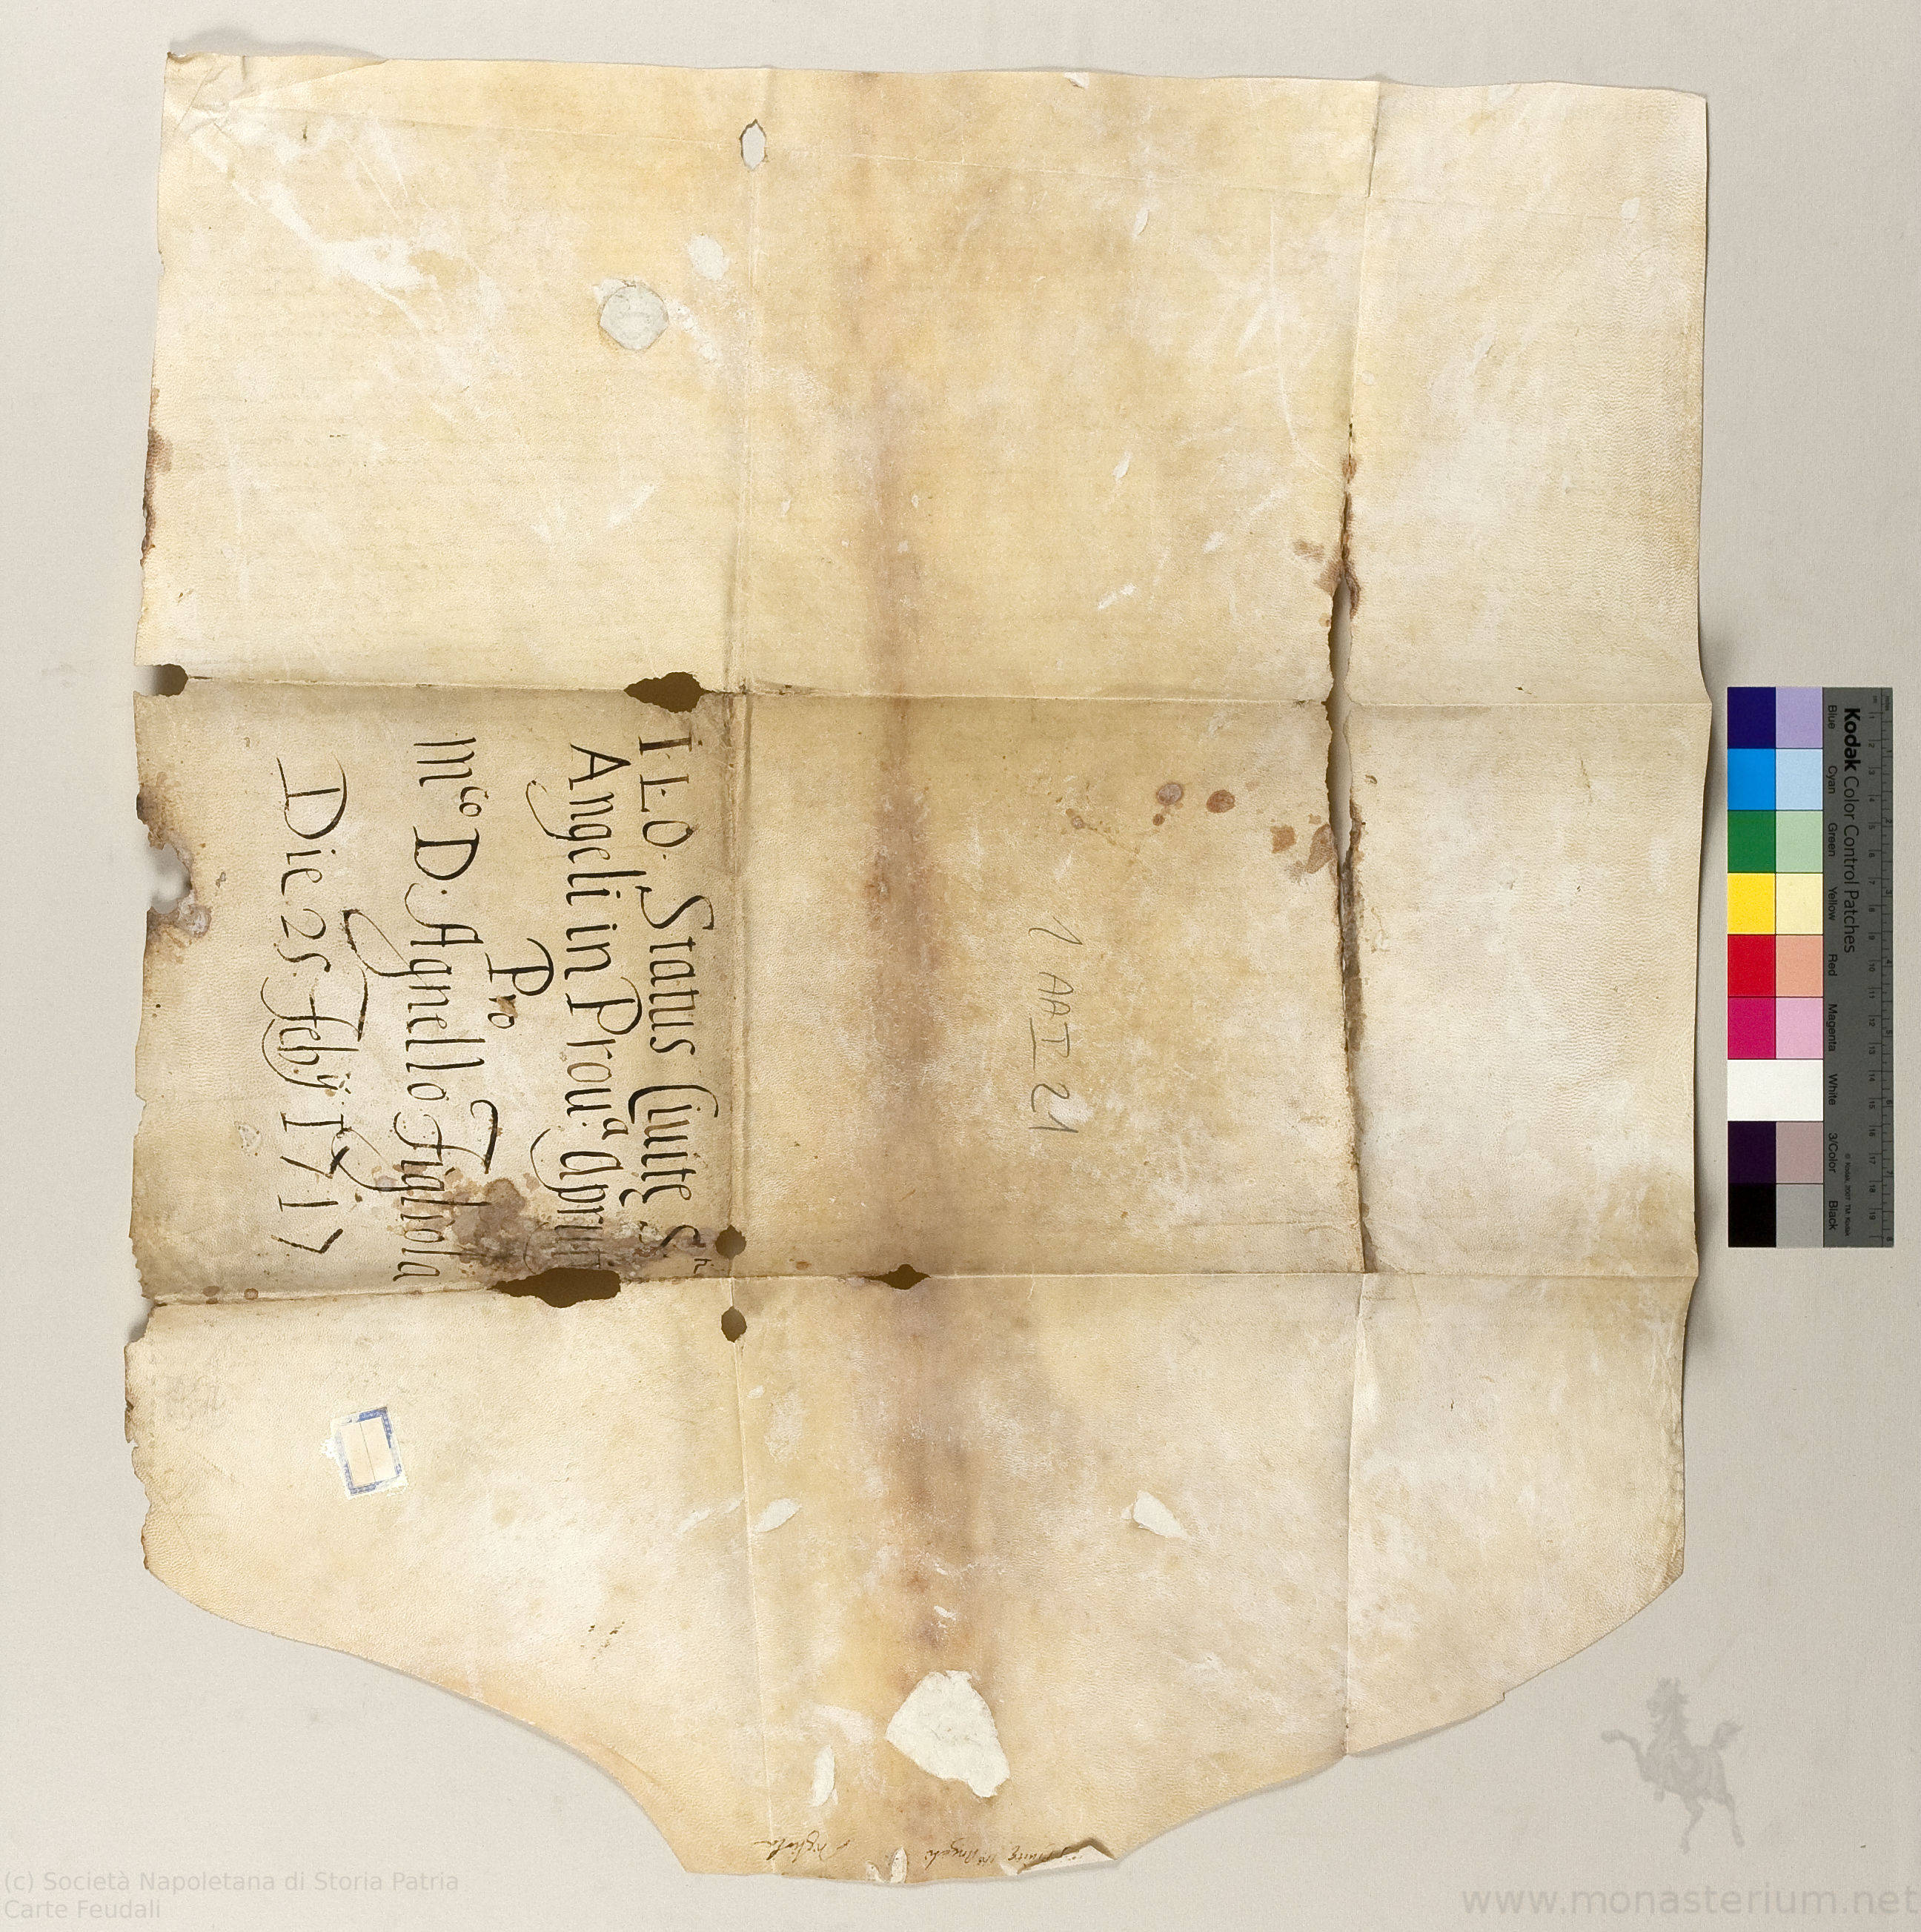 I. L. O. Status Ciuit.̃ S.
Angeli in Prou.ᵃ Aprut.
Pro
M.ᶜᵒ D. Agnello Figliola
Die 25 Feb.ÿ 1717
1 AA I 21
Angeli
Figliola
Kodak Color Control Patches
Blue Cyan Green Yellow Red Magenta White 3/Color Black
(c) Società Napoletana di Storia Patria
Carte Feudali
www.monasterium.net